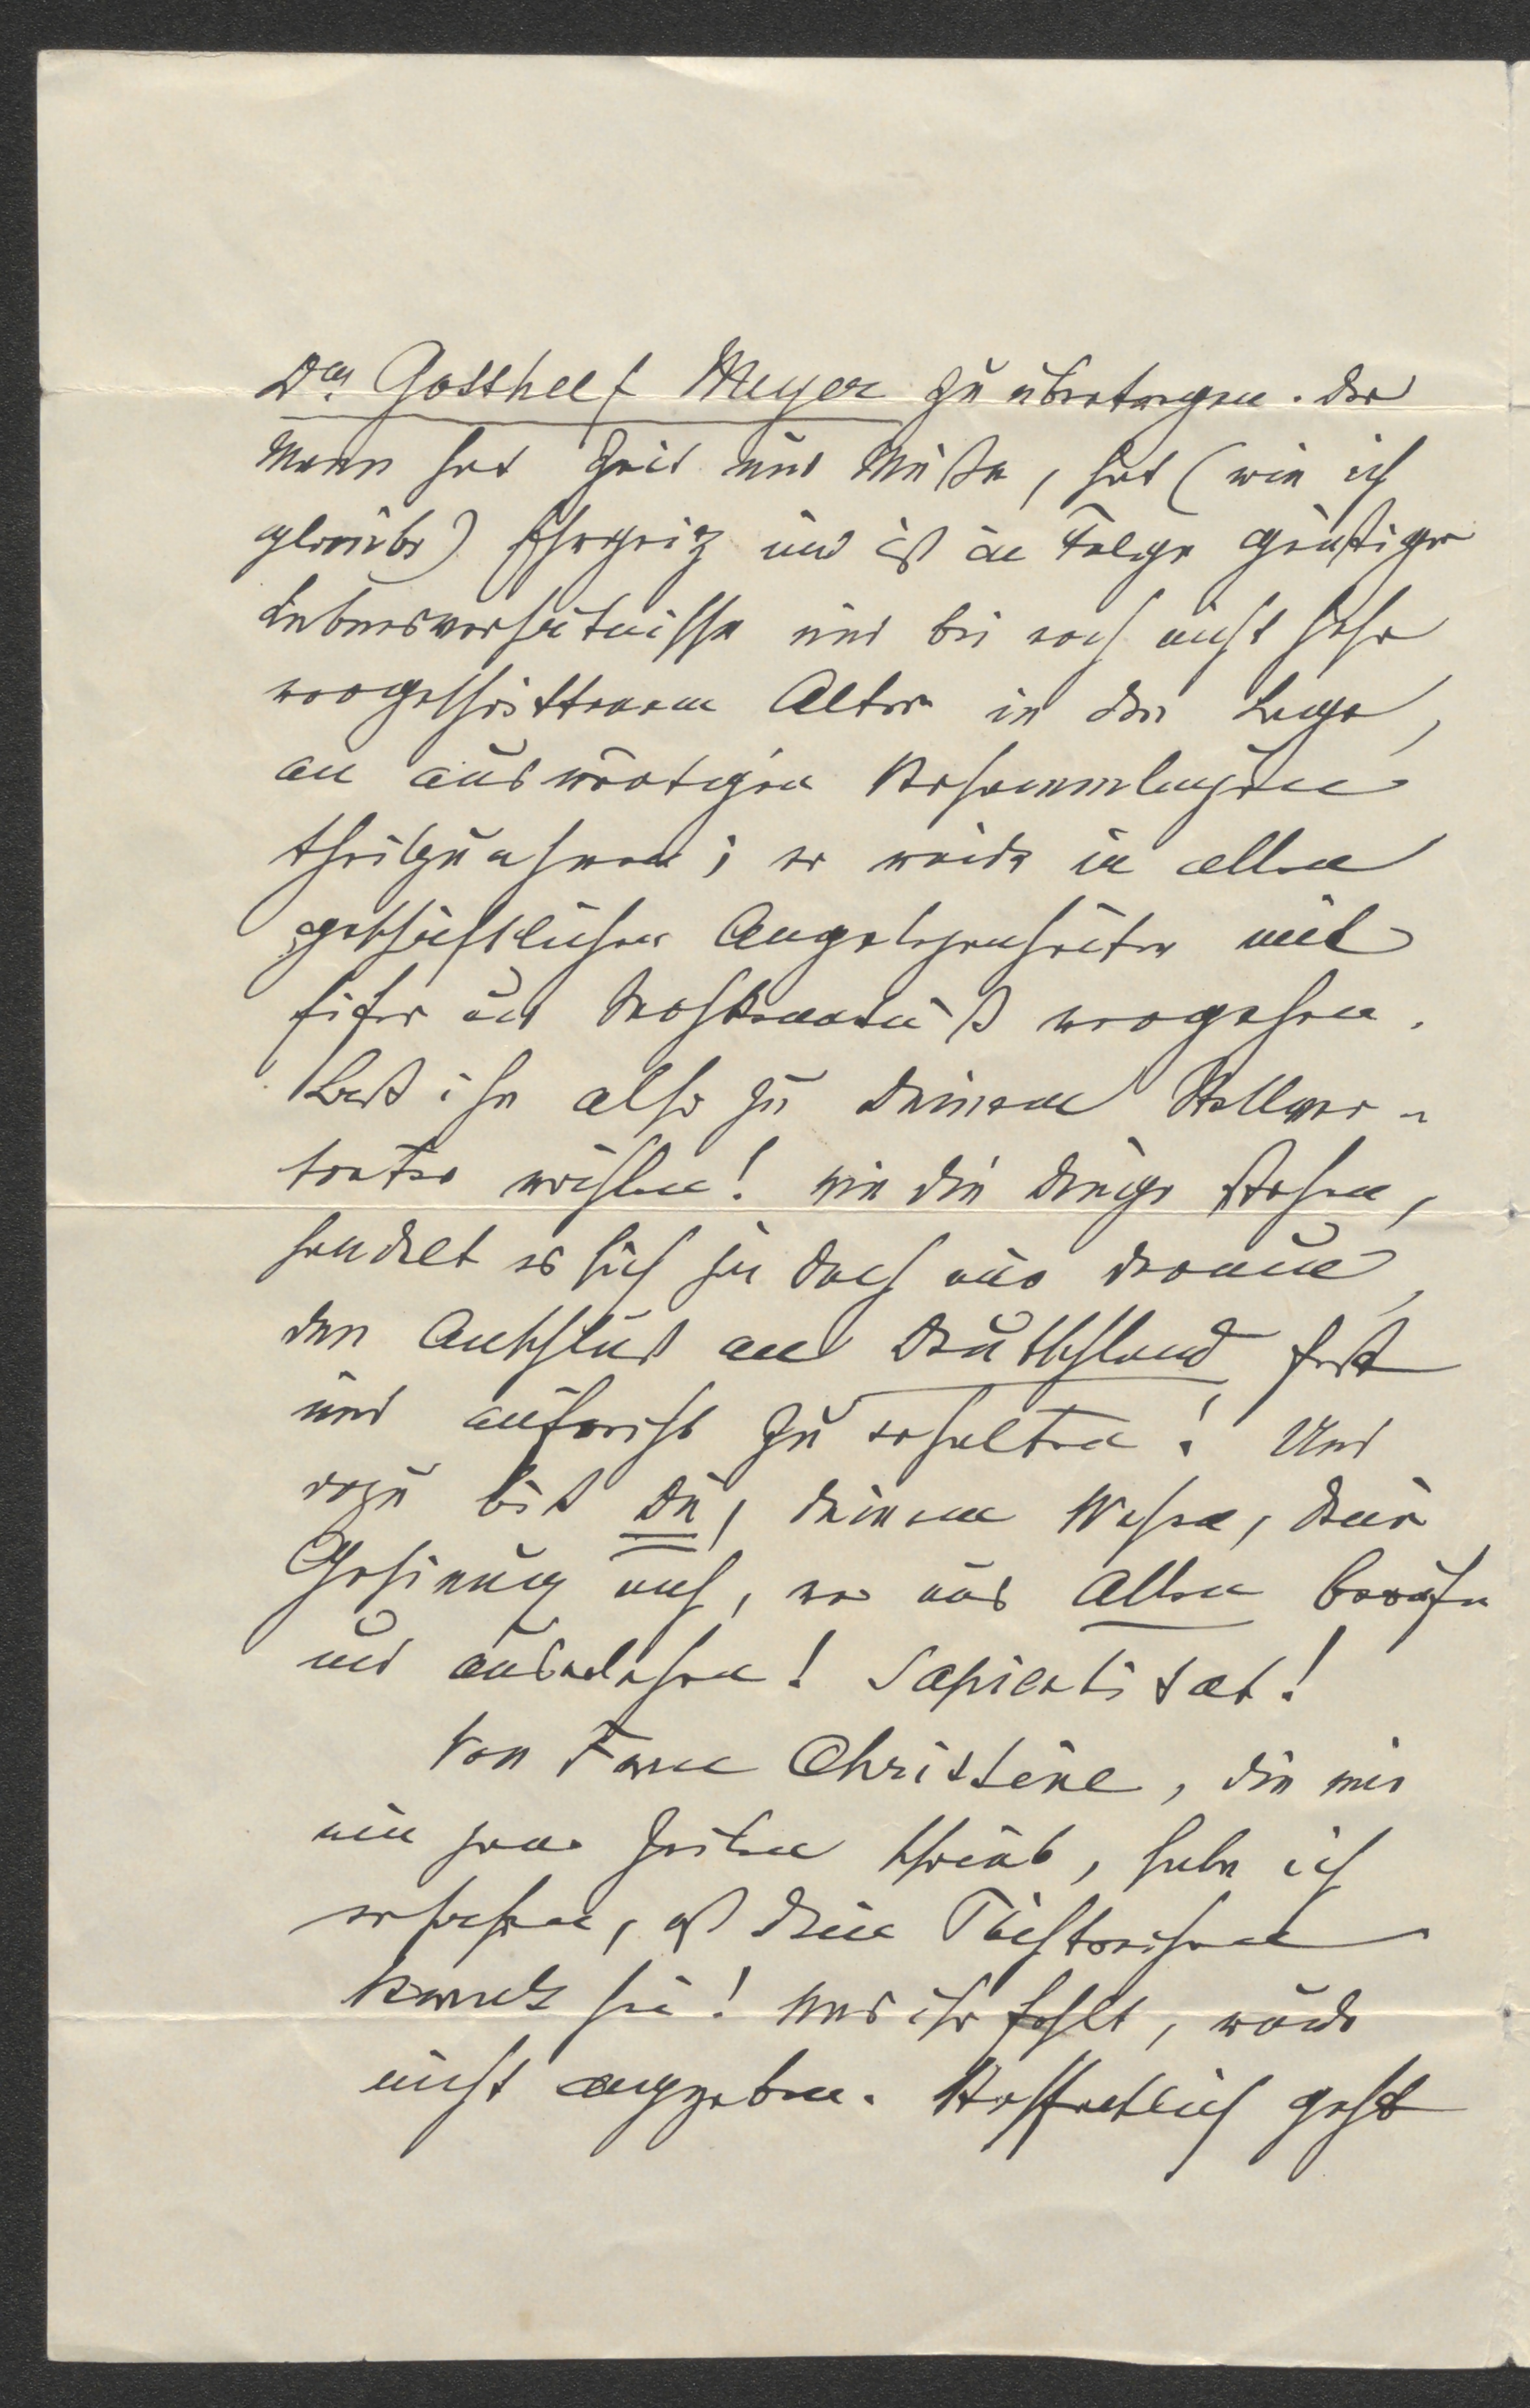 Dm Gotthelf Meyer zu übertragen. Der
Mann hat Zeit und Muße, hat (wie ich
glaube) Ehrgeiz und ist in Folge günstiger
Lebensverhältnisse und bei noch nicht sehr
vorgeschrittenem Alter in der Lage,
an auswärtigen Versammlungen
theilzunehmen; er würde in allen
geschäftlichen Angelegenheiten mit
Eifer und Sachkenntniß vorgehen.
Laß ihn also zu Deinem Stellver-
treter wählen! Wie die Dinge stehen,
handelt es sich ja doch nur darum,
den Anschluß an Deutschland fest
und aufrecht zu erhalten! Und
dazu bist Du, Deinem Wesen, Deiner
Gesinnung nach, vor uns Allen berufen
und auserlesen! Sapienti sat!
Von Frau Christine, die mir
ein paar Zeilen schrieb, habe ich
erfahren, daß Dein Töchterchen
krank sei! Was ihr fehlt, wurde
nicht angegeben. Hoffentlich geht